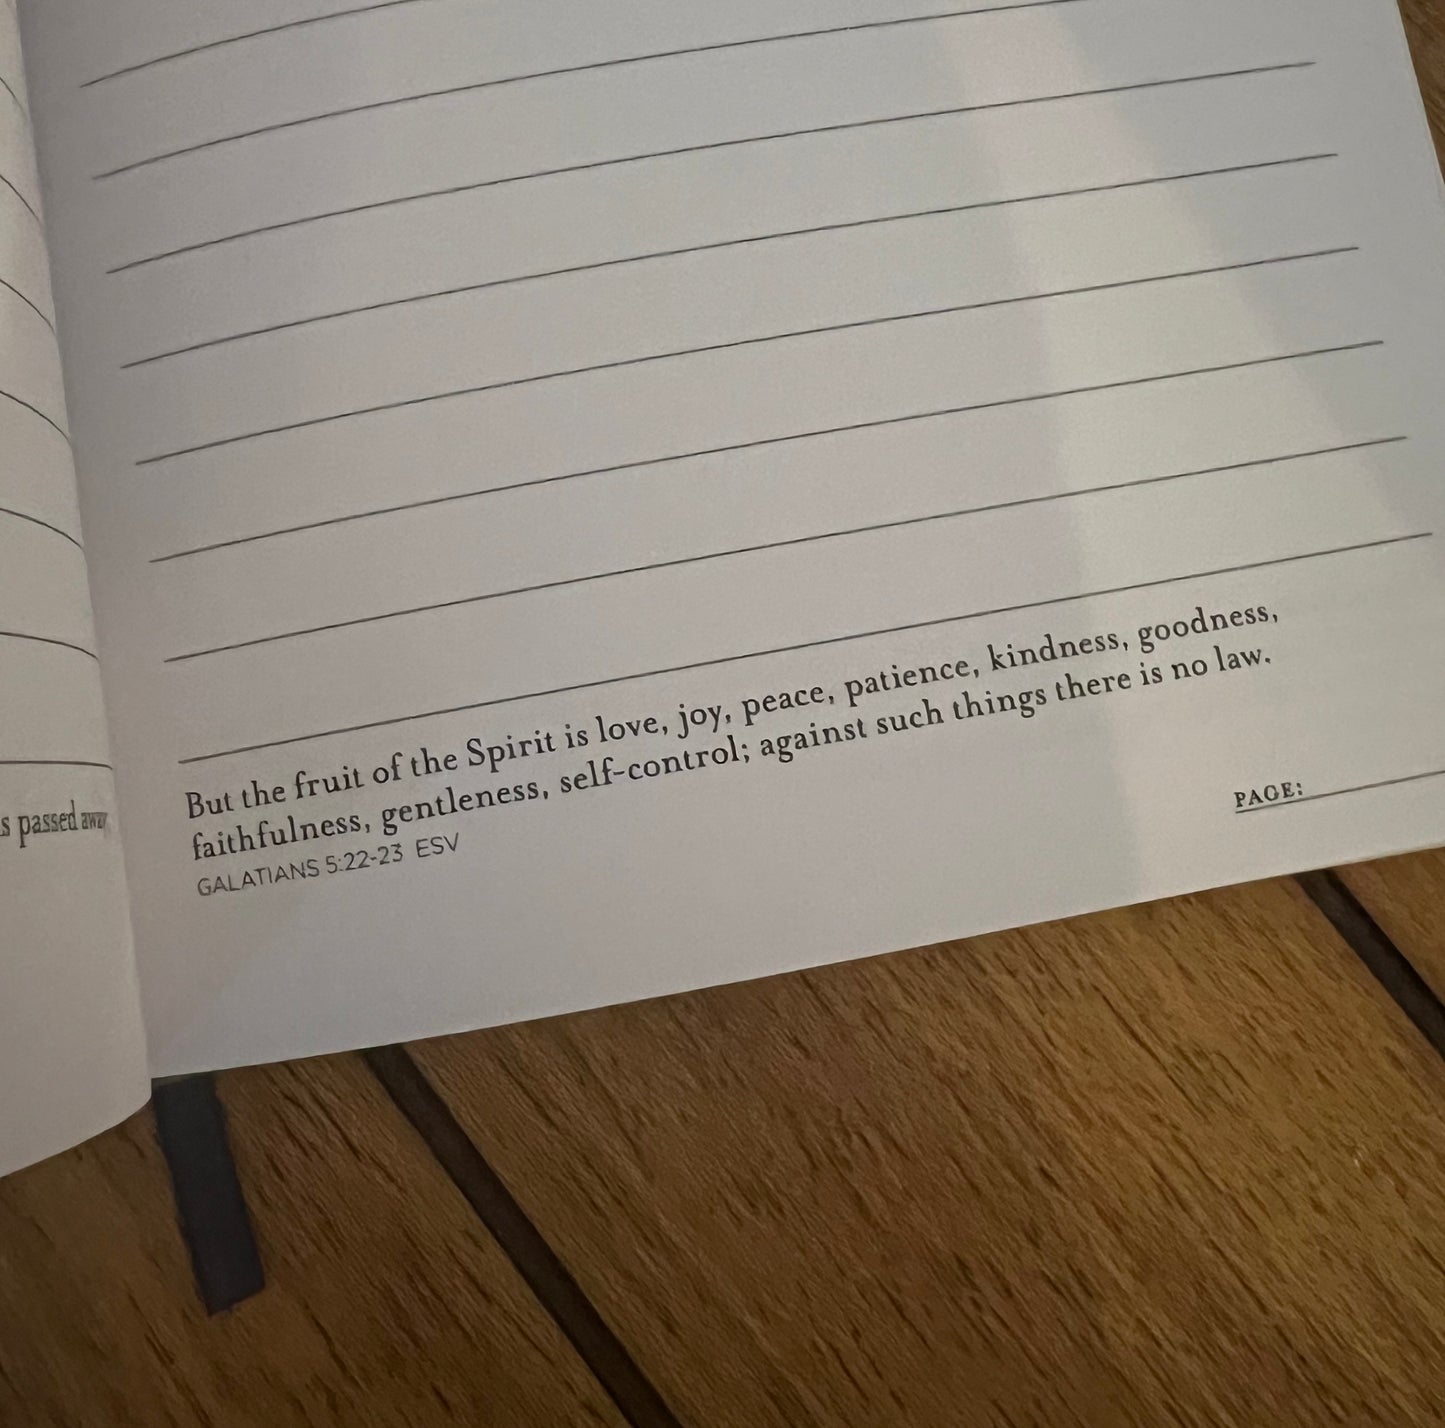 s passed away
But the fruit of the Spirit is love, joy, peace, patience, kindness, goodness,
faithfulness, gentleness, self-control; against such things there is no law.
GALATIANS 5:22-23 ESV
PAGE: